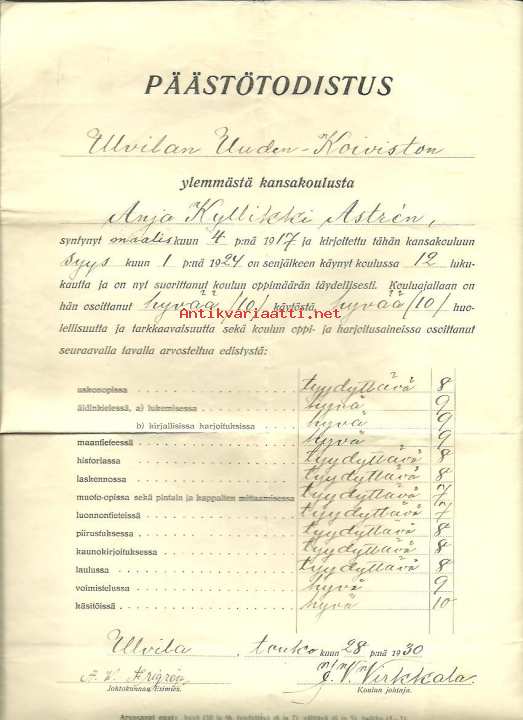 PÄÄSTÖTODISTUS
Ulvilan Uuden-Koiviston
ylemmästä kansakoulusta
Anja Kyllikki Astrén,
syntynyt maaliskuun 4 p:nä 1917 ja kirjoitettu tähän kansakouluun
Syys kuun 1 p:nä 1924 on senjälkeen käynyt koulussa 12 luku-
kautta ja on nyt suorittanut koulun oppimäärän täydellisesti. Kouluajallaan on
hän osoittanut hyvää /10/ käytöstä, hyvää /10/ huo-
lellisuutta ja tarkkaavaisuutta sekä koulun oppi- ja harjoitusaineissa osoittanut
seuraavalla tavalla arvosteltua edistystä:
Antikvariaatti.net
uskonopissa tyydyttävä 8
äidinkielessä, a) lukemisessa hyvä 9
b) kirjallisissa harjoituksissa hyvä 9
maantieteessä hyvä 9
historiassa tyydyttävä 8
laskennossa tyydyttävä 8
muoto-opissa sekä pintain ja kappalten mittaamisessa tyydyttävä 7
luonnontieteissä tyydyttävä 7
piirustuksessa tyydyttävä 8
kaunokirjoituksessa tyydyttävä 8
laulussa tyydyttävä 8
voimistelussa hyvä 9
käsitöissä hyvä 10
Ulvila, touko kuun 28 p:nä 1930
J. V. Virkkala.
Johtokunnan Esimies. Koulun johtaja.